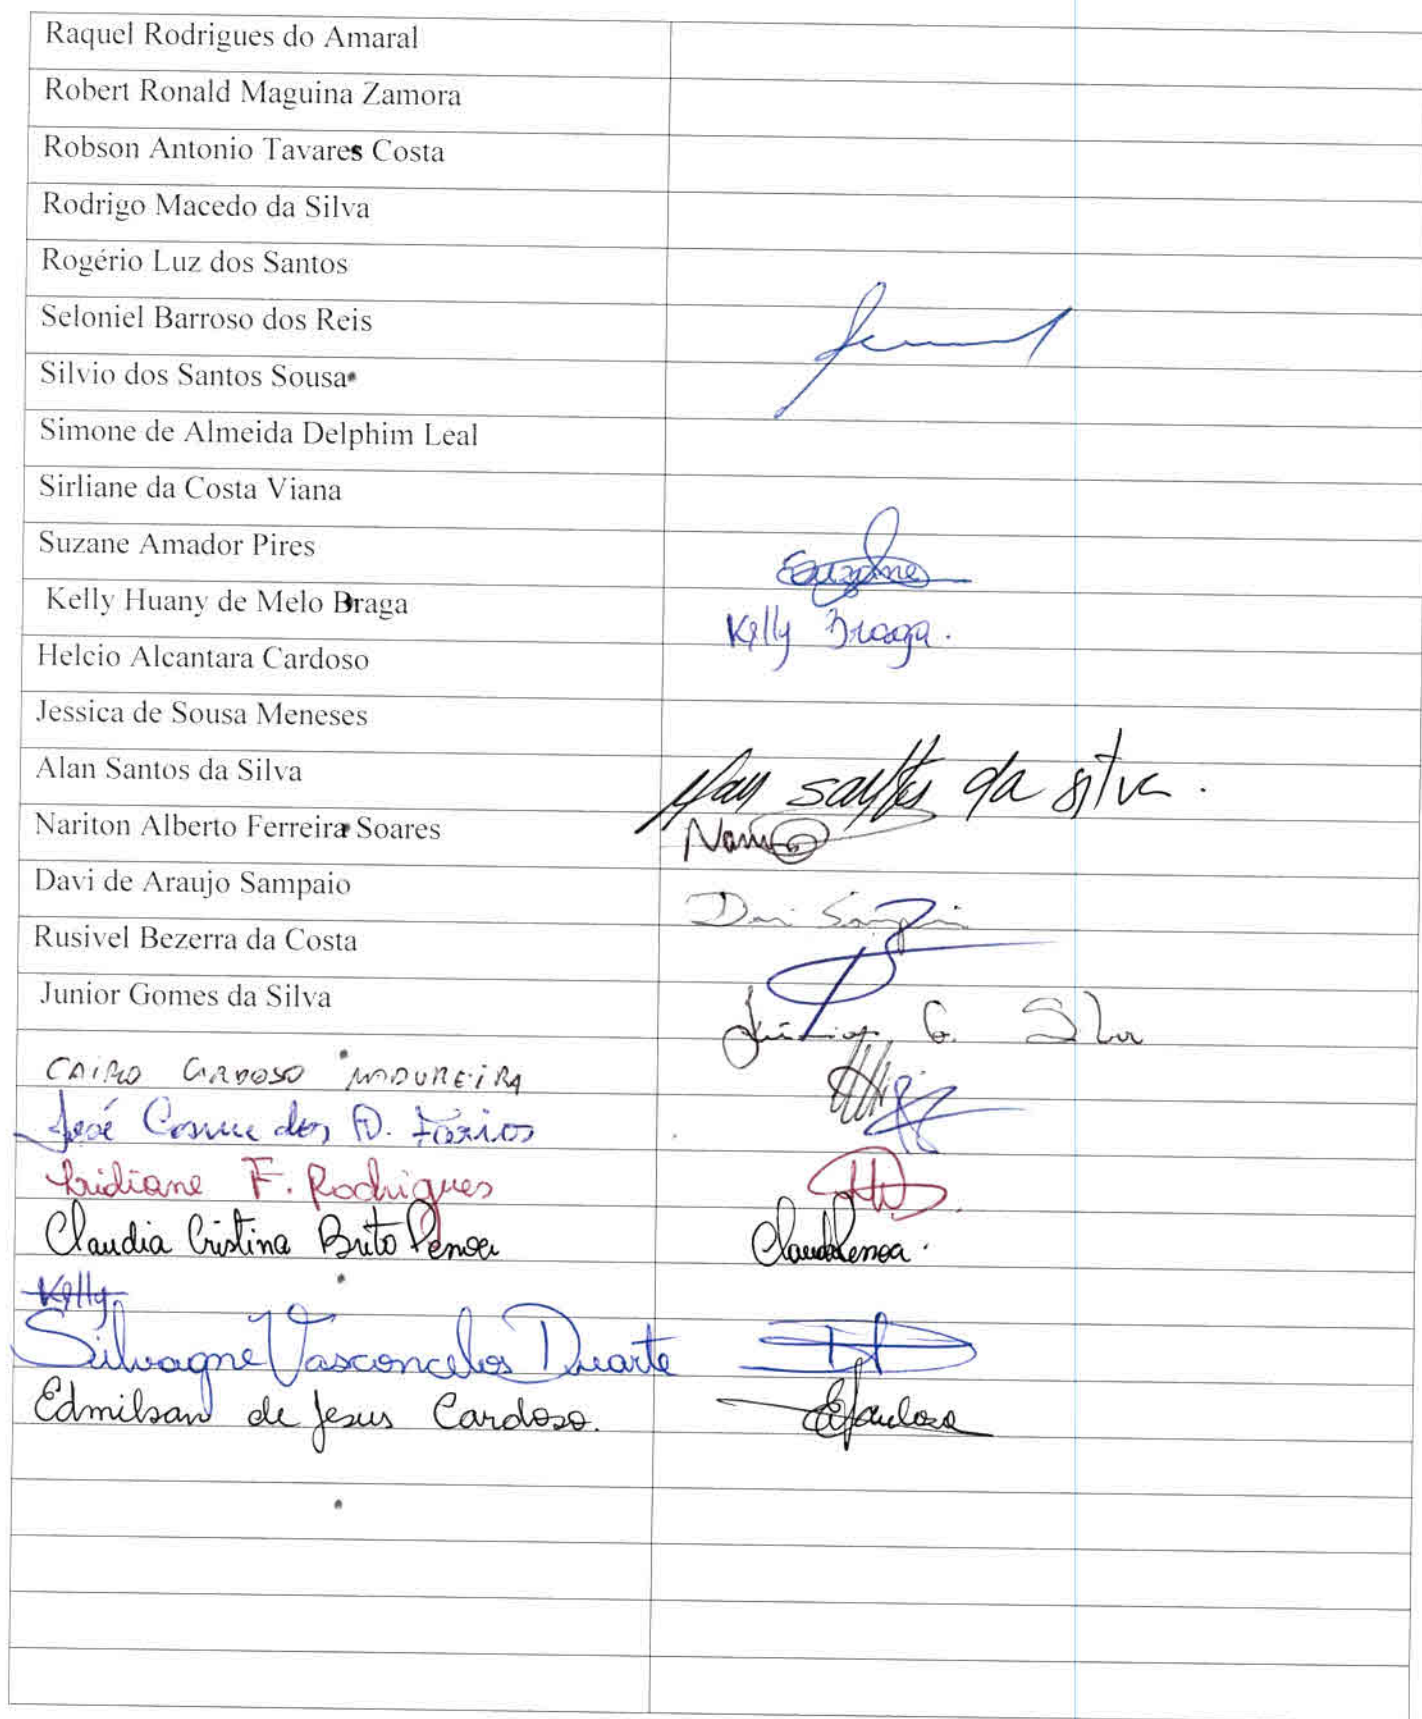 Raquel Rodrigues do Amaral
Robert Ronald Maguina Zamora
Robson Antonio Tavares Costa
Rodrigo Macedo da Silva
Rogério Luz dos Santos
Seloniel Barroso dos Reis
Silvio dos Santos Sousa
Simone de Almeida Delphim Leal
Sirliane da Costa Viana
Suzane Amador Pires Suzane
Kelly Huany de Melo Braga Kelly Braga.
Helcio Alcantara Cardoso
Jessica de Sousa Meneses
Alan Santos da Silva Alan santos da silva.
Nariton Alberto Ferreira Soares
Davi de Araujo Sampaio Davi Sampaio
Rusivel Bezerra da Costa
Junior Gomes da Silva Júnior G. Silva
CAIRO CARDOSO MADUREIRA
José Cosme dos
F. Rodrigues
Claudia Cristina Brito
Kelly
Silvagne Vasconcelos Duarte
Edmilson de Jesus Cardoso.